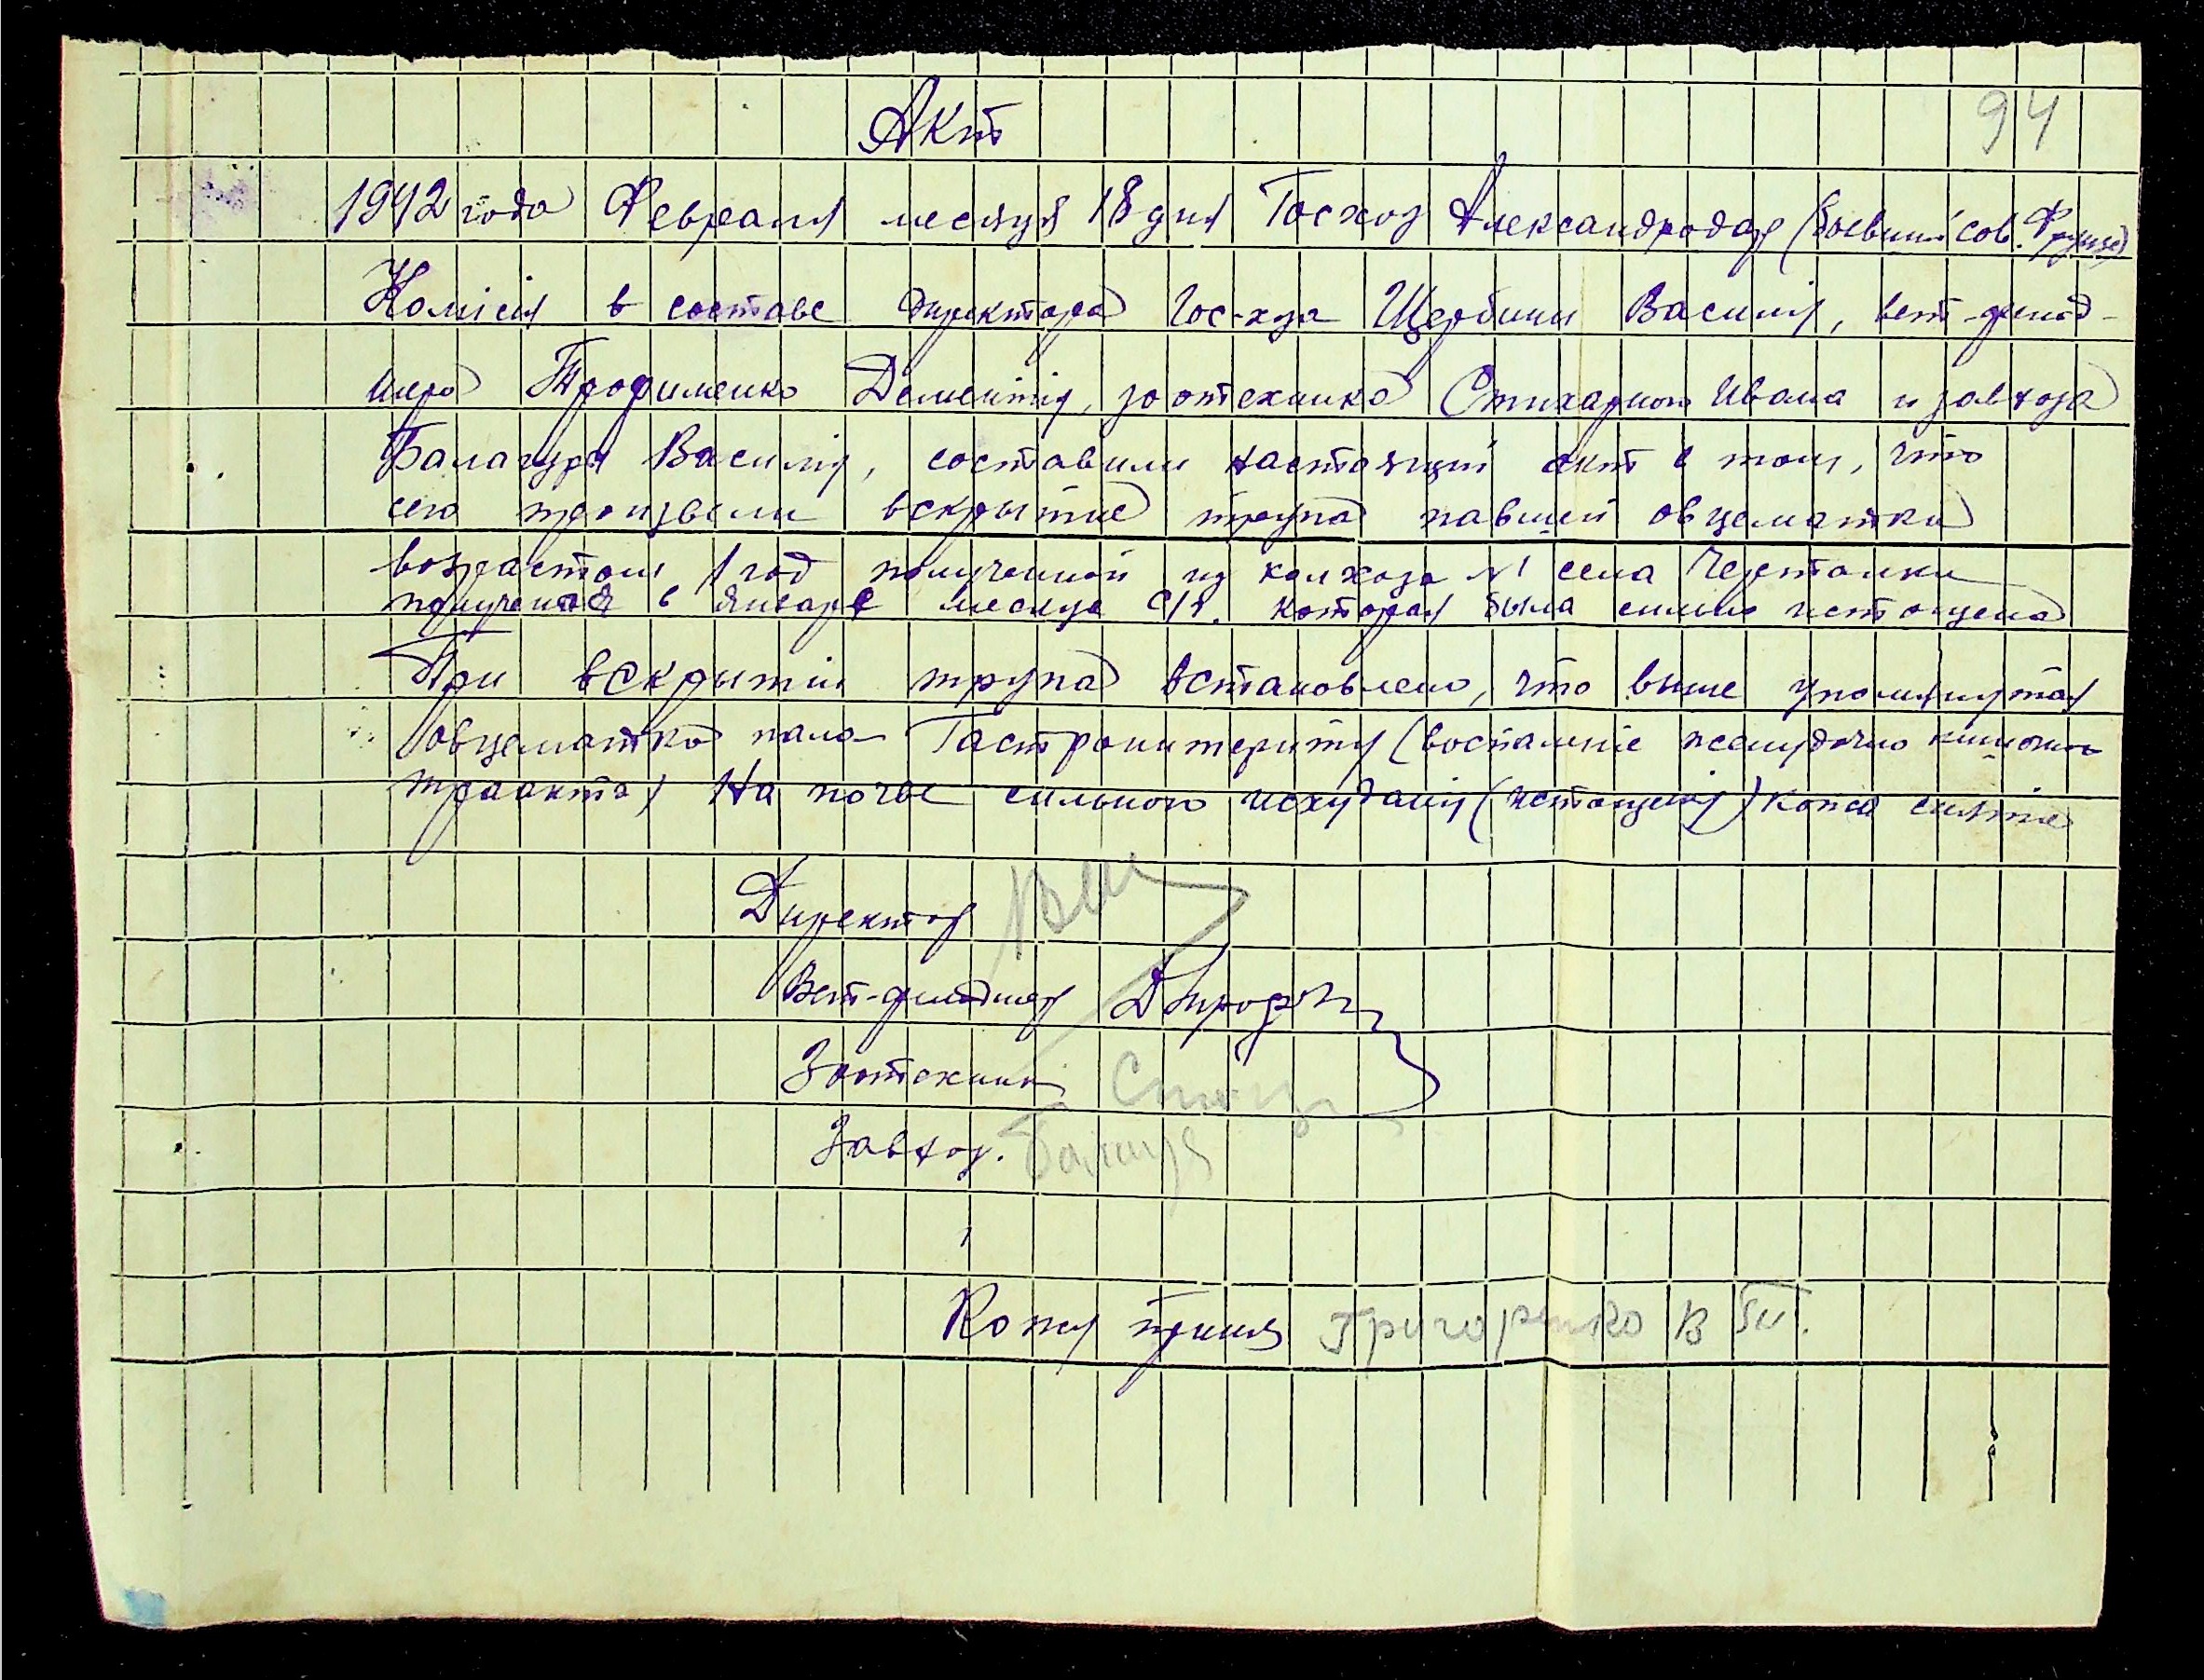 94
Акт
1942 года Февраля месяца 18 дня Госхоз Александродар (бывший сов. Фрунзе)
Комісія в составе директора Гос-хза Щербини Василія, вет-фельд-
шера Трофименко Дементія, зоотехника Стихарного Ивана и завхоза
Балагура Василія, составили настоящий акт в том, что
сего произвели вскрытие трупа павшей овцематки
возрастом 1 год полученной из колхоза №1 села Чертомки
полученая в январе месяце с/г. которая была сильно истощена
При вскрытіи трупа встановлено, что выше упомянутая
овцематка пала Гастроинтериту (воспаленіе желудочно кишечного
траакта) На почве сильного исхуданія (истощенія) кожа снята
Директор
Вет-фельдшер ДТроф
Зоотехник
Завхоз. Балагур
Кожу принял Григоренко В